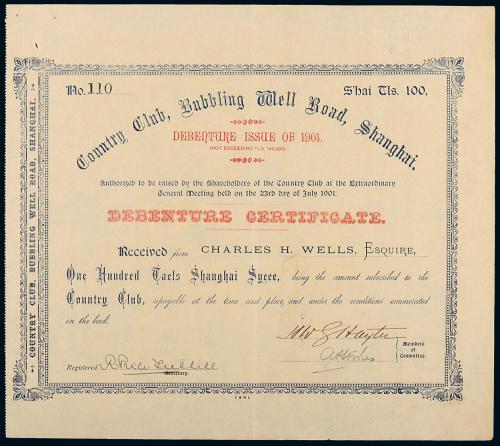 No. 110
S'hai Tls. 100.
Country Club, Bubbling Well Road, Shanghai.
DEBENTURE ISSUE OF 1901.
Authorized to be raised by the Shareholders of the Country Club at the Extraordinary
General Meeting held on the 23rd day of July 1901.
DEBENTURE CERTIFICATE.
Received from CHARLES H. WELLS, ESQUIRE,
One Hundred Taels Shanghai Sycee, being the amount subscribed to the
Country Club, repayable at the time and place, and under the conditions enumerated
on the back.
Members
of
Committee
Registered
Secretary.
COUNTRY CLUB, BUBBLING WELL ROAD, SHANGHAI.